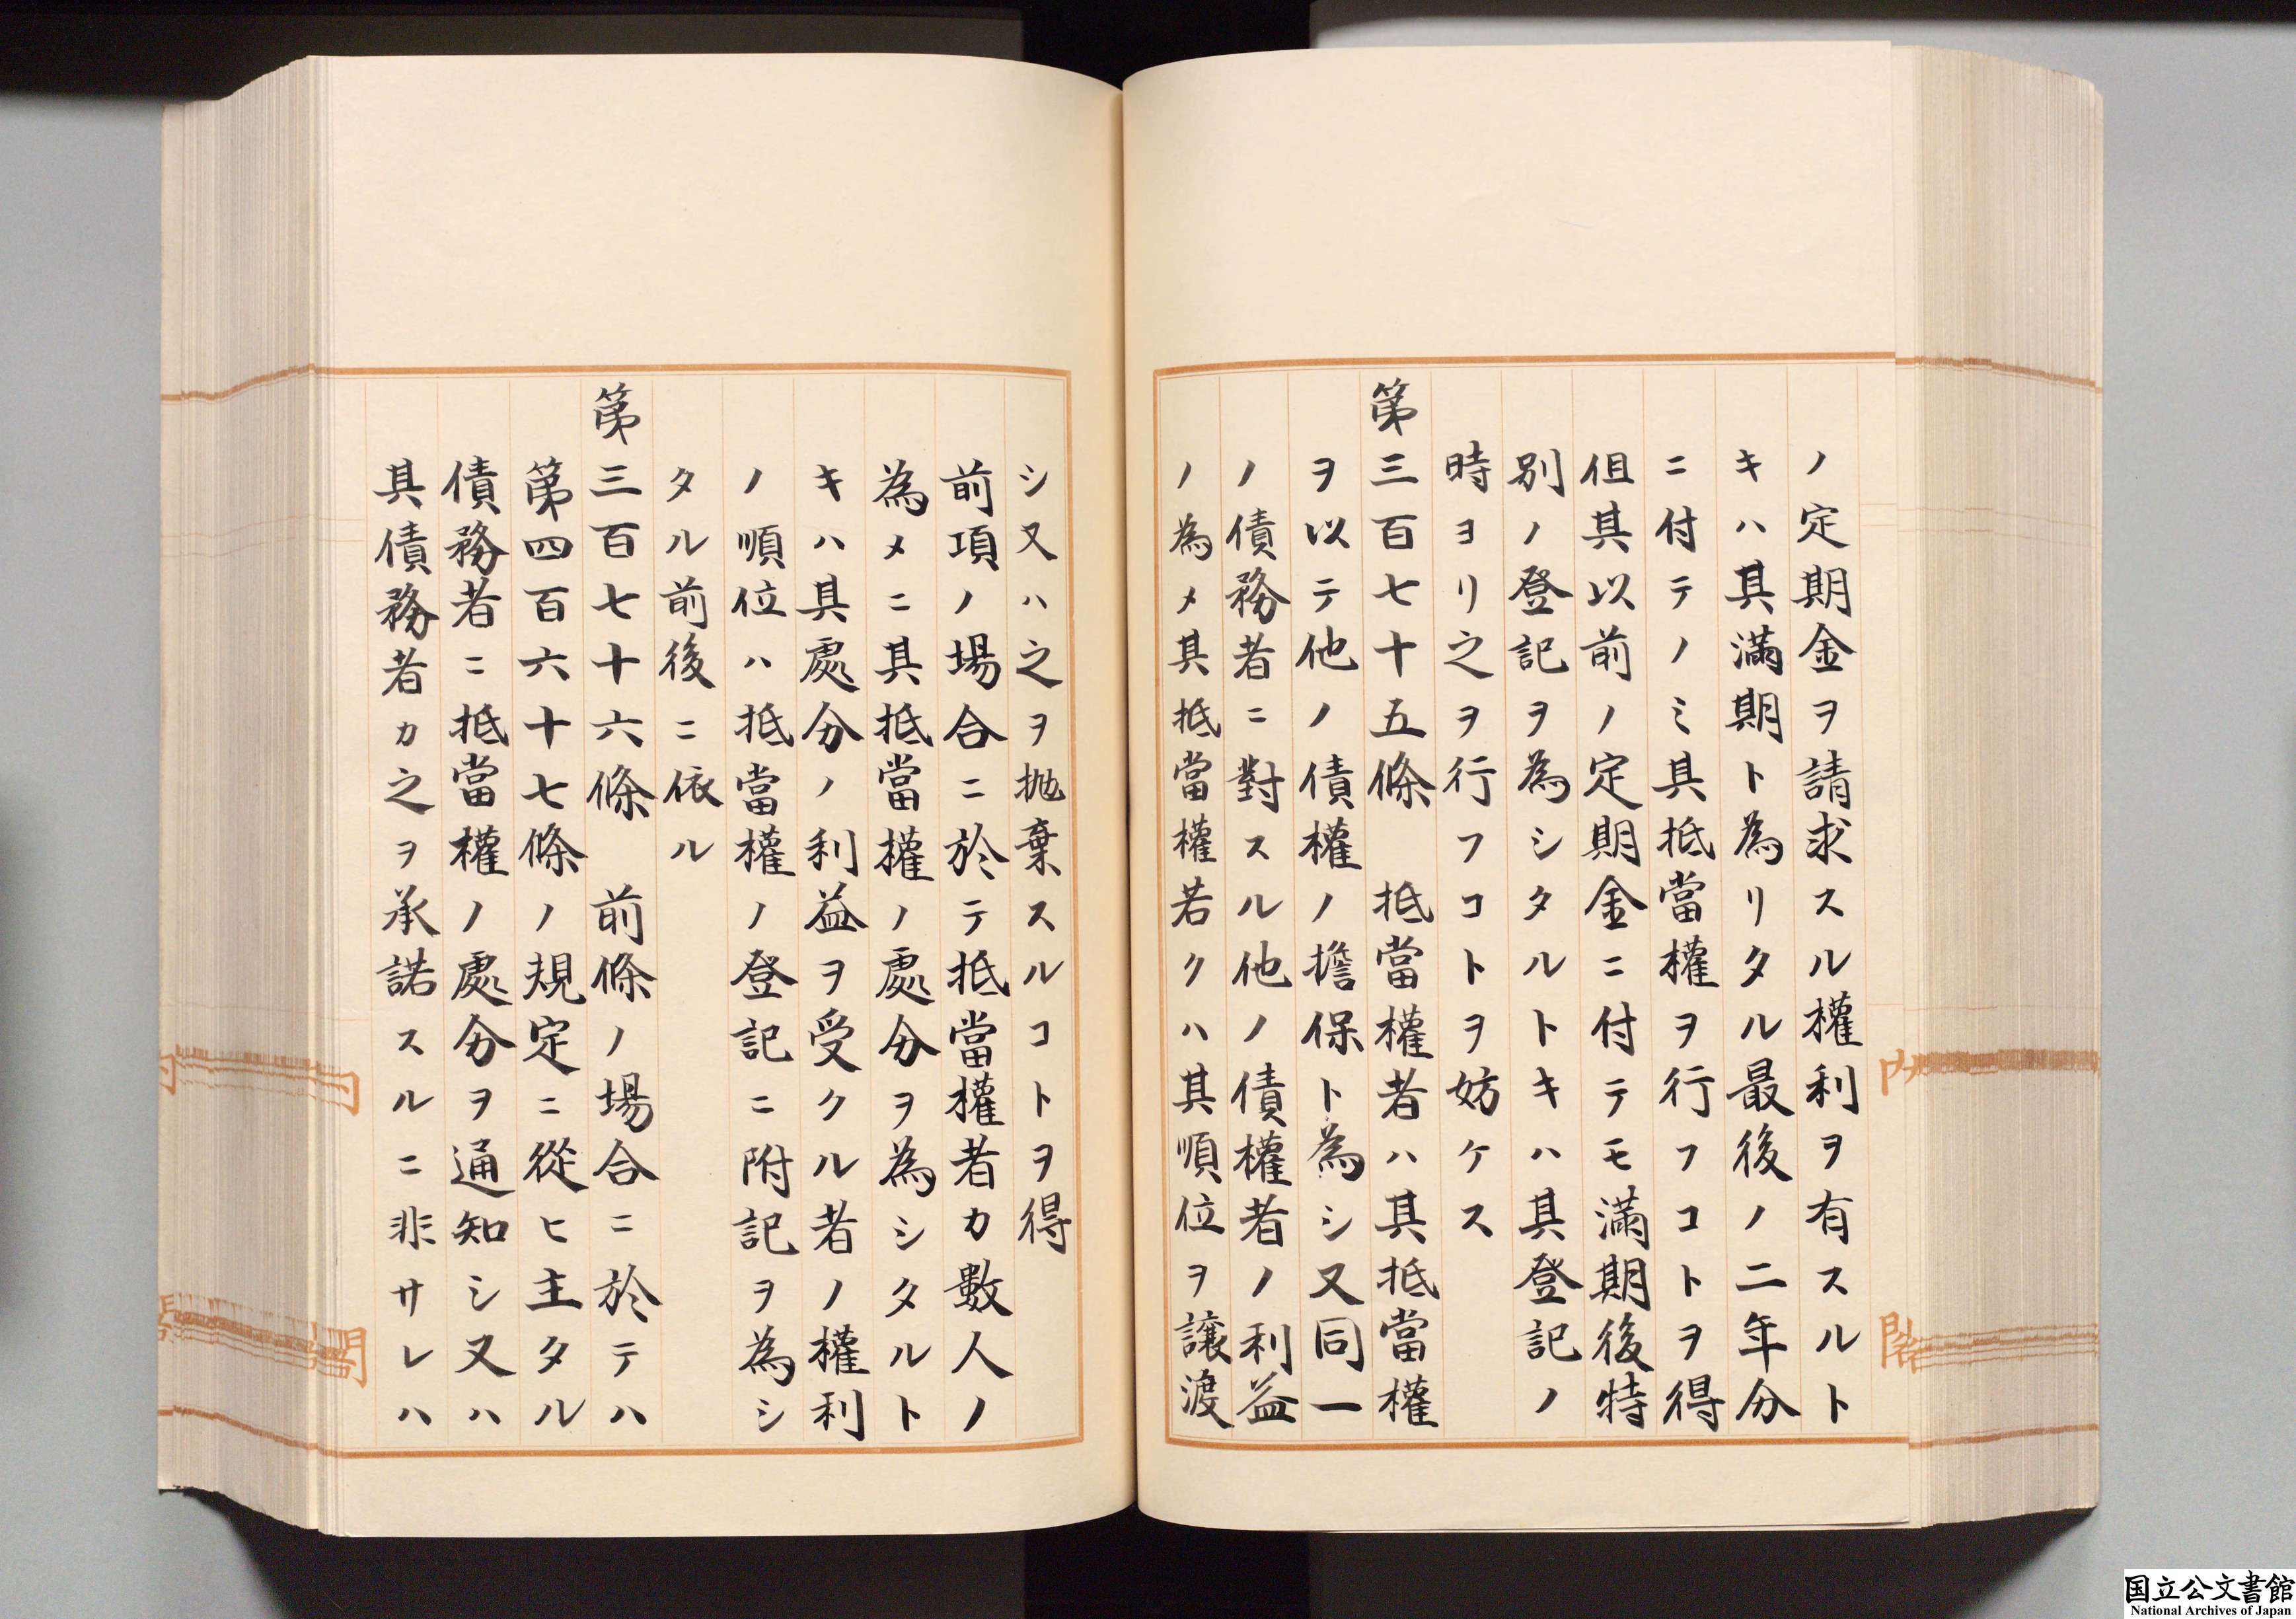 ノ定期金ヲ請求スル權利ヲ有スルト
キハ其滿期ト為リタル最後ノ二年分
ニ付テノミ其抵當權ヲ行フコトヲ得
但其以前ノ定期金ニ付テモ滿期後特
別ノ登記ヲ為シタルトキハ其登記ノ
時ヨリ之ヲ行フコトヲ妨ケス
第三百七十五條 抵當權者ハ其抵當權
ヲ以テ他ノ債權ノ擔保ト為シ又同一
ノ債務者ニ對スル他ノ債權者ノ利益
ノ為メ其抵當權若クハ其順位ヲ讓渡
シ又ハ之ヲ抛棄スルコトヲ得
前項ノ場合ニ於テ抵當權者カ數人ノ
為メニ其抵當權ノ處分ヲ為シタルト
キハ其處分ノ利益ヲ受クル者ノ權利
ノ順位ハ抵當權ノ登記ニ附記ヲ為シ
タル前後ニ依ル
第三百七十六條 前條ノ場合ニ於テハ
第四百六十七條ノ規定ニ從ヒ主タル
債務者ニ抵當權ノ處分ヲ通知シ又ハ
其債務者カ之ヲ承諾スルニ非サレハ
内閣
国立公文書館
National Archives of Japan